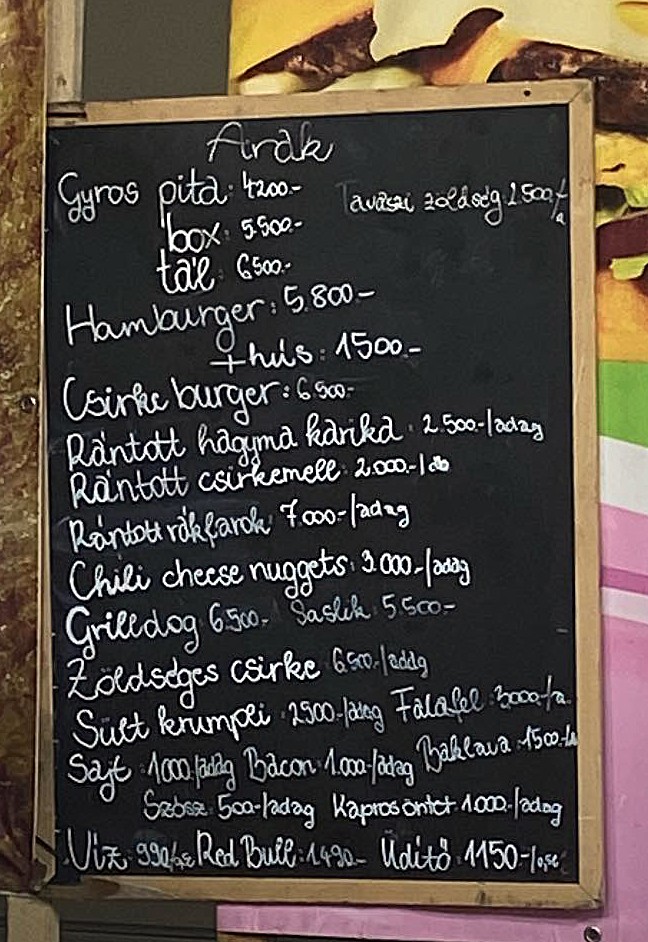 Árak
Gyros pita: 4200.- Tavaszi zöldség 2.500/a
box: 5.500.-
tál: 6500.-
Hamburger: 5.800-
+hús: 1500.-
Csirke burger: 6500.-
Rántott hagyma karika: 2.500.-/adag
Rántott csirkemell: 2.000.-/db
Rántott rákfarok: 7.000.-/adag
Chili cheese nuggets: 3.000.-/adag
Grilldog 6.500.- Saslik 5.500-
Zöldséges csirke 6.500.-/adag
Sült krumpli: 2500.-/adag Falafel: 3000-/a.
Sajt: 1000./adag Bacon: 1.000-/adag Baklava: 1500-/a
Szósz: 500-/adag Kapros öntet 1.000.-/adag
Víz: 990/ Red Bull: 1490.- Üdítő: 1150-/0,5l